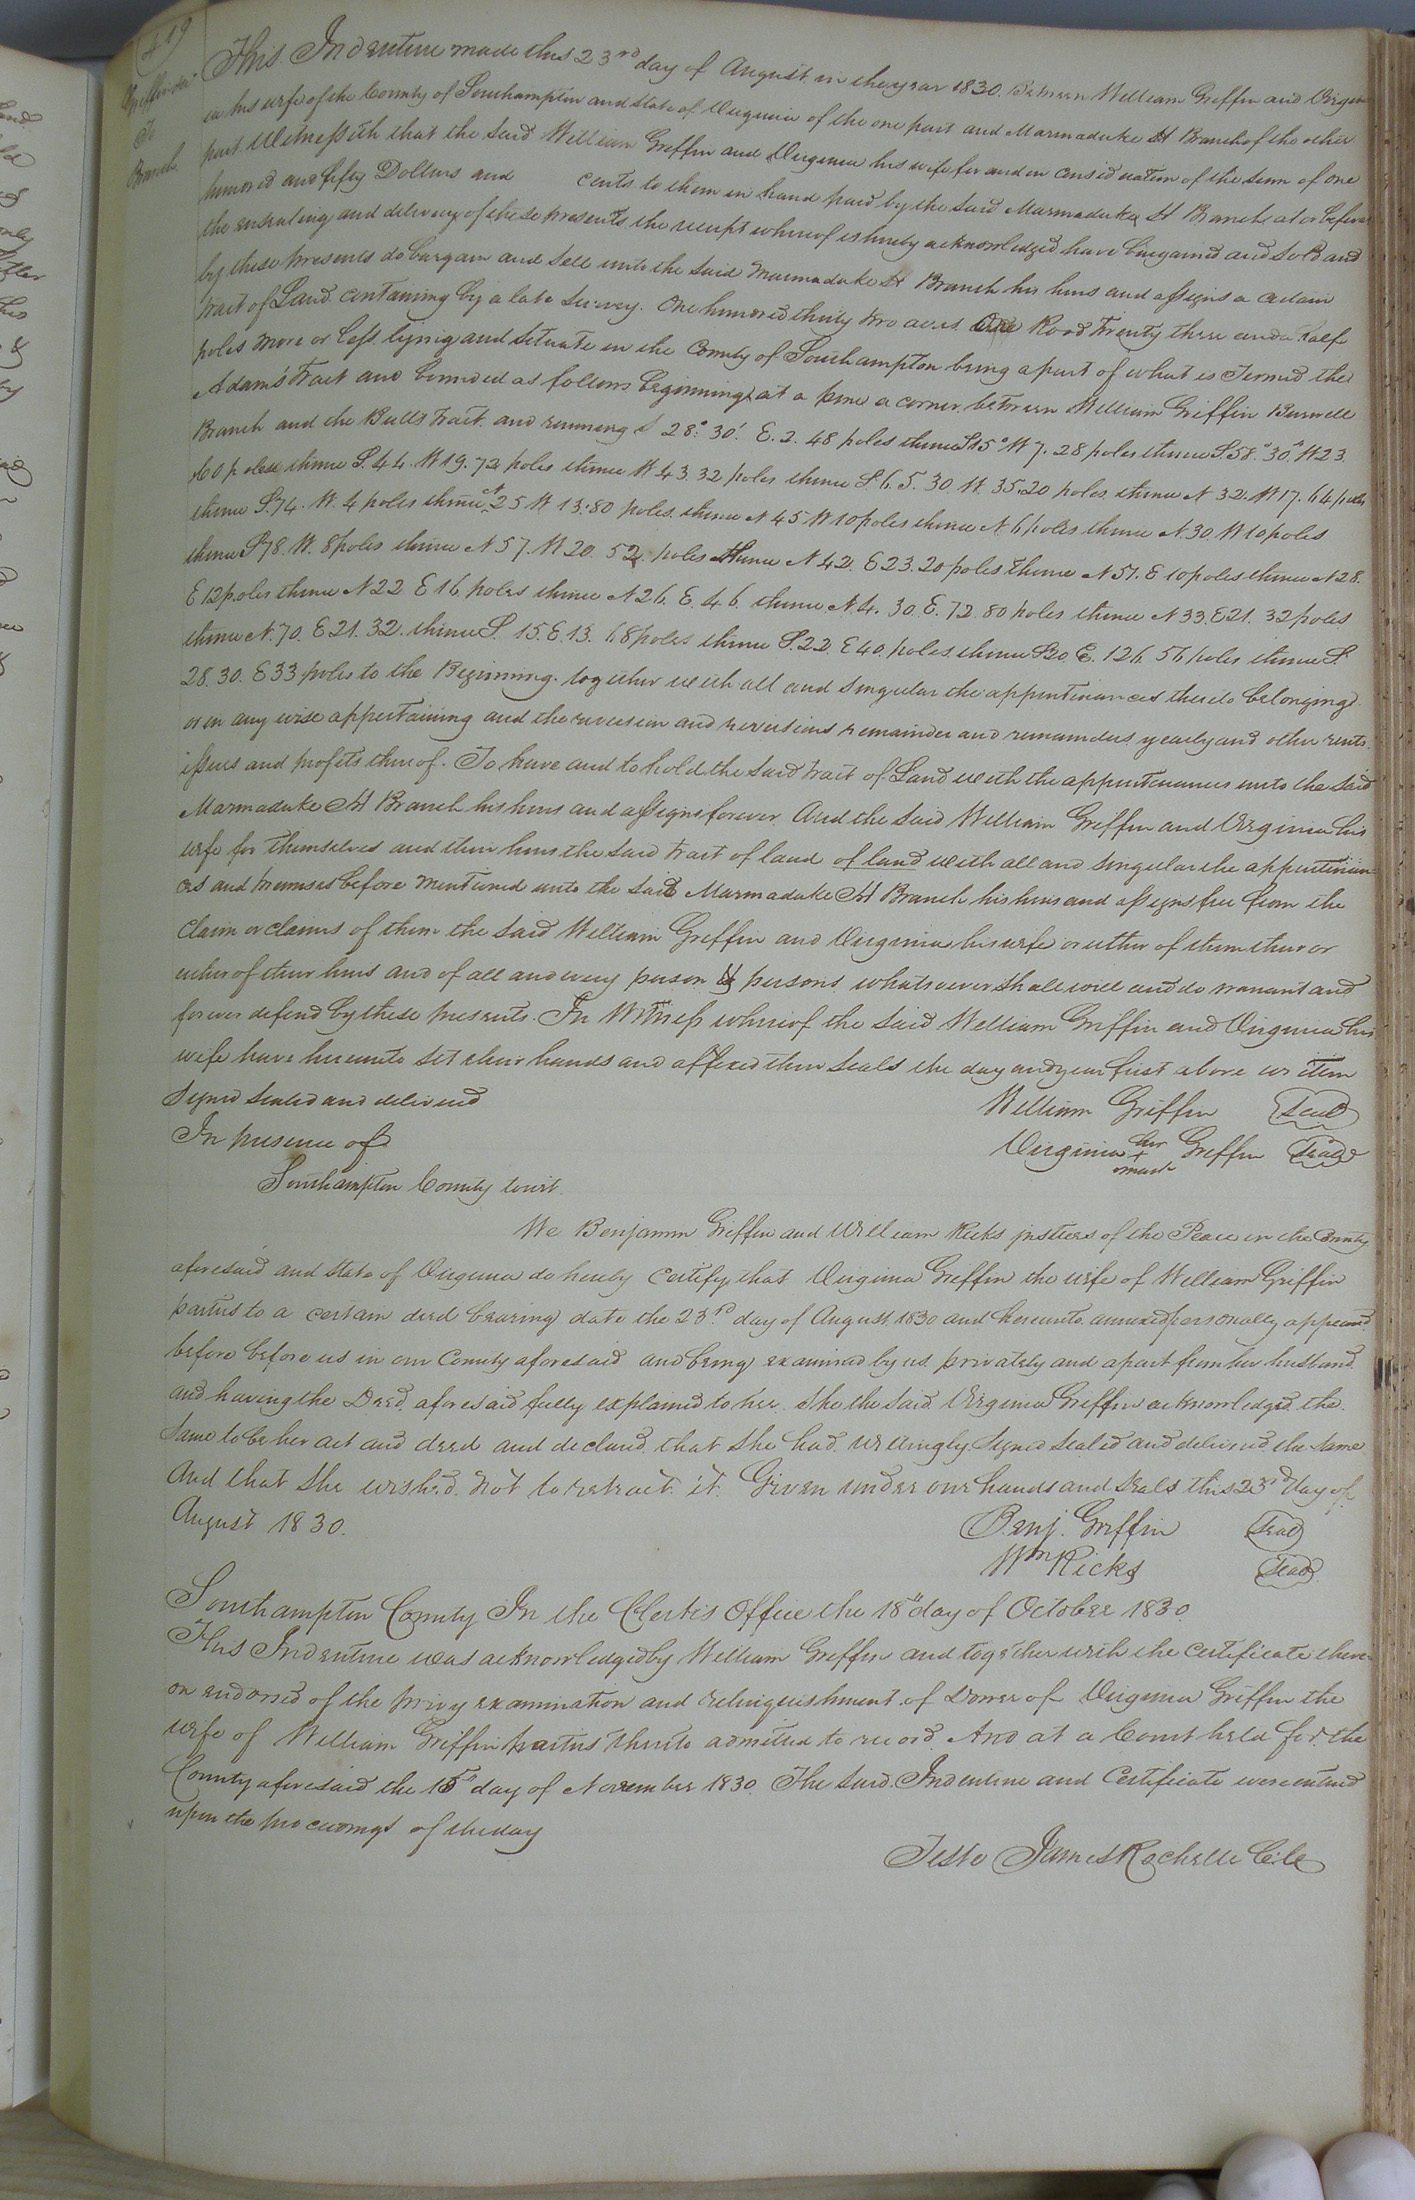 419
Griffin &c
To
Branch
This Indenture made this 23rd day of August in the year 1830. Between William Griffin and Virgin
ia his wife of the County of Southampton and State of Virginia of the one part and Marmaduke H Branch of the other
part Witnesseth that the said William Griffin and Virginia his wife for and in consideration of the sum of one
hundred and fifty Dollars and cents to them in hand paid by the said Marmaduke H Branch at or before
the ensealing and delivery of these presents the receipt whereof is hereby acknowledged have bargained and sold and
by these presents do bargain and sell unto the said Marmaduke H Branch his heirs and assigns a certain
tract of Land containing by a late survey. One hundred thirty two acres One Rood Twenty three and a half
poles more or less lying and situate in the County of Southampton being a part of what is Termed the
Adam's tract and bounded as follows beginning at a pine a corner between William Griffin Burwell
Branch and the Bulls tract and running S 28° 30' E. 2. 48 poles thence S 15° W 7. 28 poles thence S. 58° 30" W 23.
60 poles thence S. 44. W 19. 72 poles thence W 43. 32 poles thence S. 65. 30 W. 35.20 poles thence N 32. W 17. 64 poles
thence S. 74. W. 4 poles thence N 25 W 13.80 poles thence N 45 W 10 poles thence N 6 poles thence N. 30 W 10 poles
thence S 78. W. 8 poles thence N 57. W 20. 52 poles thence N 42. E 23. 20 poles thence N 51. E 10 poles thence N 28.
E 12 poles thence N 22 E 16 poles thence N 26. E. 46. thence N. 4. 30. E. 72. 80 poles thence N 33. E 21. 32 poles
thence N. 70. E 21. 32. thence S. 15. E. 13. 68 poles thence S. 22. E 40 poles thence S 20 E. 126. 56 poles thence S.
28. 30. E 33 poles to the Beginning. together with all and singular the appurtinances thereto belonging
or in any wise appertaining and the reversion and reversions remainder and remainders yearly and other rents
issues and profits thereof. To have and to hold the said tract of Land with the appurtenances unto the said
Marmaduke H Branch his heirs and assigns forever And the said William Griffin and Virginia his
wife for themselves and their heirs the said tract of land of land with all and singular the appurtinan
ces and premises before mentioned unto the said Marmaduke H Branch his heirs and assigns free from the
claim or claims of them the said William Griffin and Virginia his wife or either of them their or
either of their heirs and of all and every person & persons whatsoever shall will and do warrant and
forever defend by these presents. In Witness whereof the said William Griffin and Virginia his
wife have hereunto set their hands and affixed their seals the day and year first above written
Signed sealed and delivered William Griffin Seal
In presence of Virginia her + mark Griffin Seal
Southampton County Court.
We Benjamin Griffin and William Ricks justices of the Peace in the County
aforesaid and State of Virginia do hereby certify that Virginia Griffin the wife of William Griffin
parties to a certain deed bearing date the 23rd day of August 1830 and hereunto annexed personally appeared
before before us in our County aforesaid and being examined by us privately and apart from her husband
and having the Deed aforesaid fully explained to her. She the said Virginia Griffin acknowledged the
same to be her act and deed and declared that she had willingly signed sealed and delivered the same
And that she wished not to retract it. Given under our hands and seals this 23rd day of
August 1830. Benj. Griffin Seal
Wm Ricks Seal
Southampton County In the Clerks Office the 18th day of October 1830.
This Indenture was acknowledged by William Griffin and together with the certificate there
on endorsed of the privy examination and relinquishment of Dower of Virginia Griffin the
wife of William Griffin parties thereto admitted to record And at a Court held for the
County aforesaid the 15th day of November 1830 The said Indenture and Certificate were entered
upon the proceedings of the day
Teste James Rochelle C.C.